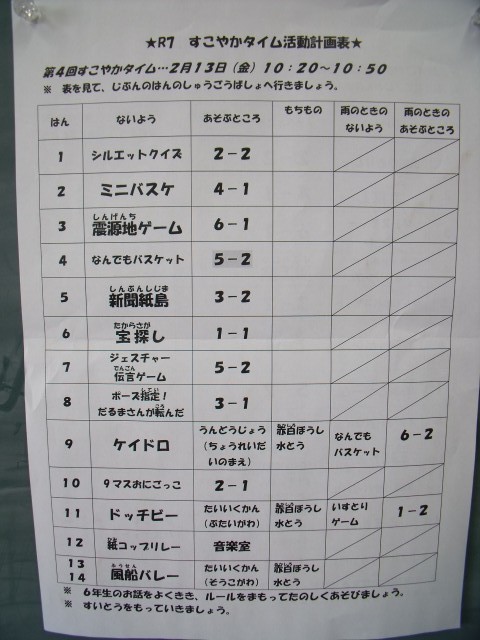 ★R7 すこやかタイム活動計画表★
第4回すこやかタイム…2月13日(金)10:20~10:50
※ 表を見て、じぶんのはんのしゅうごうばしょへ行きましょう。
はん ないよう あそぶところ もちもの 雨のときのないよう 雨のときのあそぶところ
1 シルエットクイズ 2-2
2 ミニバスケ 4-1
3 震源地ゲーム(しんげんち) 6-1
4 なんでもバスケット 5-2
5 新聞紙島(しんぶんしじま) 3-2
6 宝探し(たからさが) 1-1
7 ジェスチャー伝言ゲーム(でんごん) 5-2
8 ポーズ指定!(してい)だるまさんが転んだ(ころ) 3-1
9 ケイドロ うんどうじょう(ちょうれいだいのまえ) 赤白ぼうし 水とう なんでもバスケット 6-2
10 9マスおにごっこ 2-1
11 ドッチビー たいいくかん(ぶたいがわ) 赤白ぼうし 水とう いすとりゲーム 1-2
12 紙コップリレー(かみ) 音楽室
13 14 風船バレー(ふうせん) たいいくかん(そうこがわ) 赤白ぼうし 水とう
※ 6年生のお話をよくきき、ルールをまもってたのしくあそびましょう。
※ すいとうをもっていきましょう。